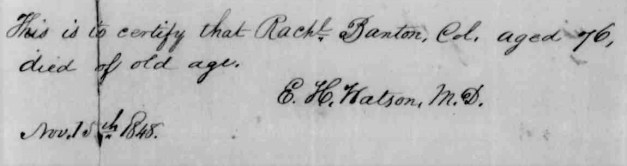 This is to certify that Rachl. Banton, Col. aged 76,
died of old age.
E. H. Watson, M.D.
Nov. 15th 1848.